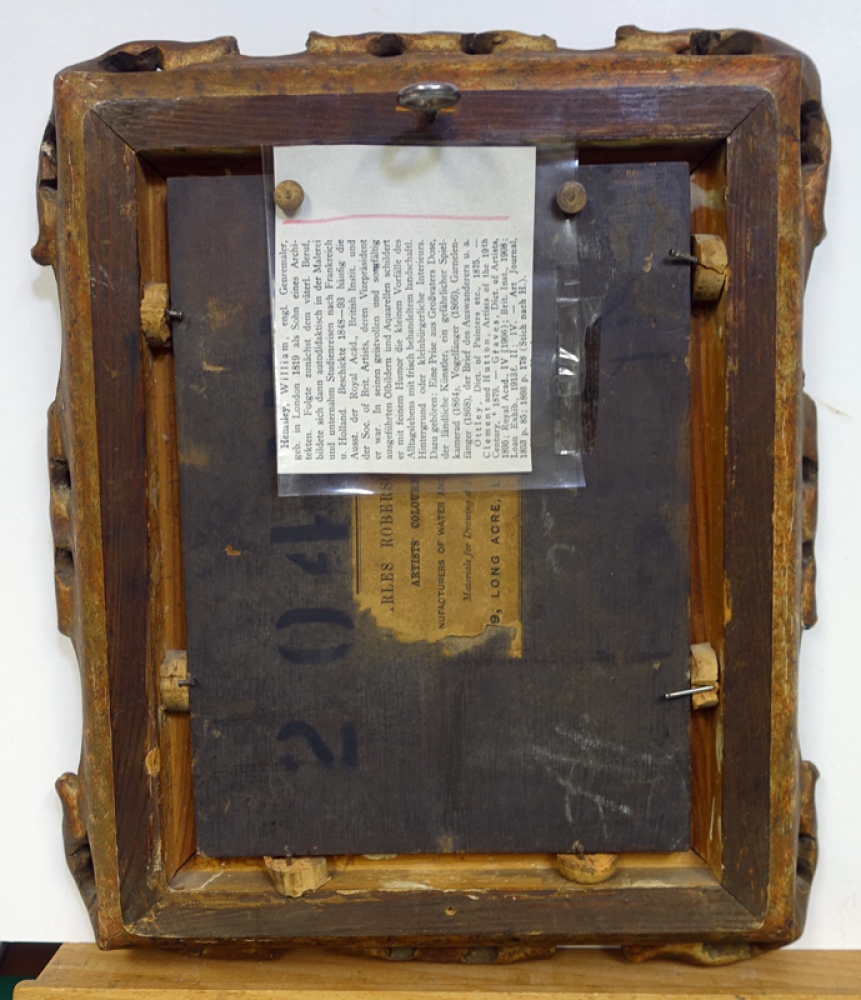 Hemsley, William, engl. Genremaler,
geb. in London 1819 als Sohn eines Archi-
tekten. Folgte zunächst dem väterl. Beruf,
bildete sich dann autodidaktisch in der Malerei
und unternahm Studienreisen nach Frankreich
u. Holland. Beschickte 1848—93 häufig die
Ausst. der Royal Acad., British Instit. und
der Soc. of Brit. Artists, deren Vizepräsident
er war. In seinen geistvollen und sorgfältig
ausgeführten Ölbildern und Aquarellen schildert
er mit feinem Humor die kleinen Vorfälle des
Alltagslebens mit frisch behandeltem landschaftl.
Hintergrund oder kleinbürgerliche Interieurs.
Dazu gehören: Eine Prise aus Großvaters Dose,
der ländliche Künstler, ein gefährlicher Spiel-
kamerad (1864), Vogelfänger (1866), Garnelen-
fänger (1868), der Brief des Auswanderers u. a.
Ottley, Dict. of Painters etc., 1875. —
Clement and Hutton, Artists of the 19th
Century, 1879. — Graves, Dict. of Artists,
1895; Royal Acad. IV (1906); Brit. Inst., 1908;
Loan Exhib. 1913f. II; IV. — Art Journal,
1853 p. 85; 1866 p. 178 (Stich nach H.).
RLES ROBERS
ARTISTS COLOUR
NUFACTURERS OF WATER AN
Materials for Drawing
9, LONG ACRE, L
204